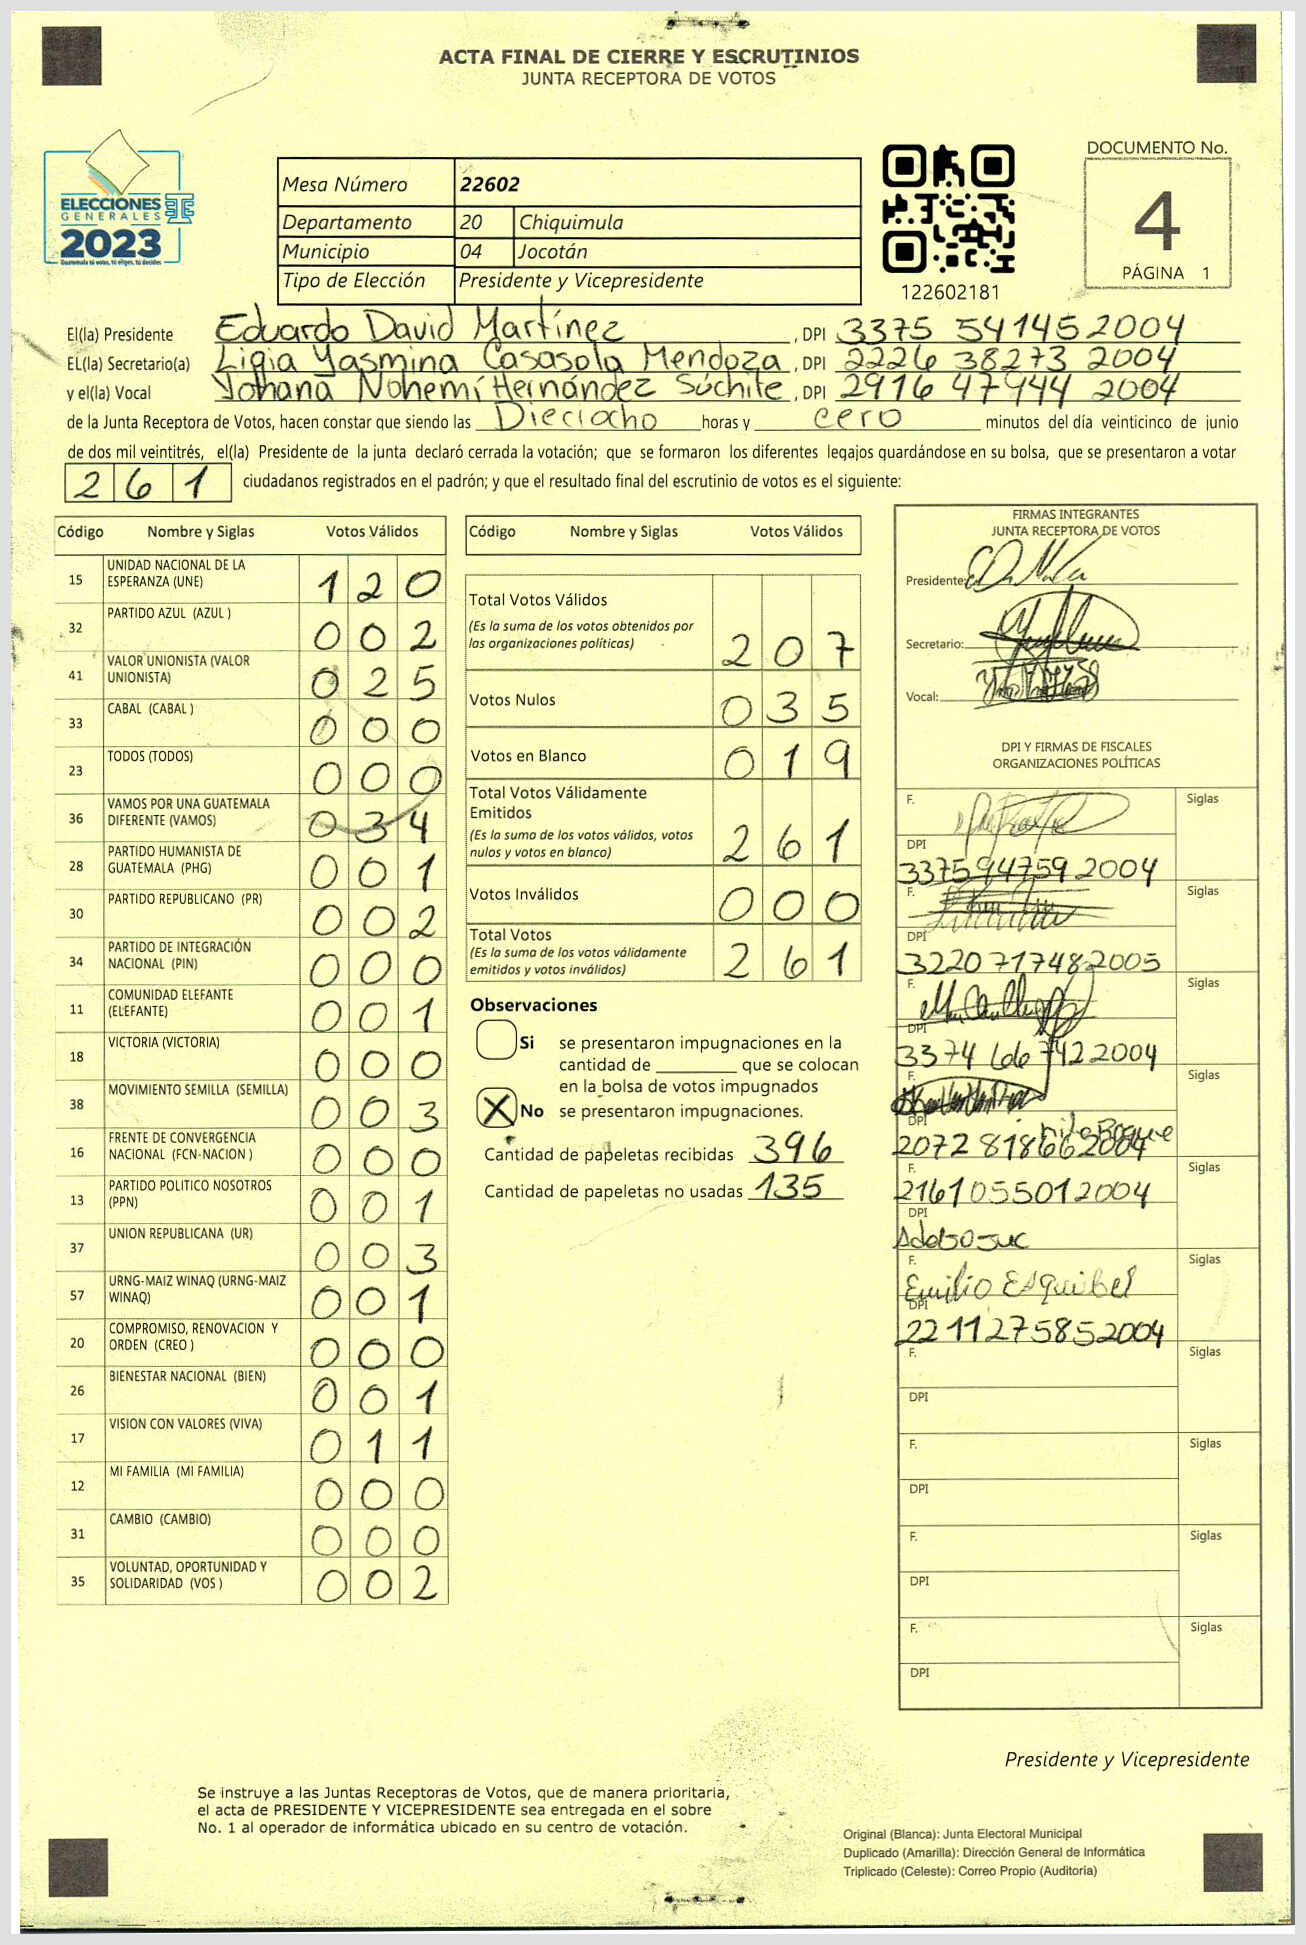 ACTA FINAL DE CIERRE Y ESCRUTINIOS
JUNTA RECEPTORA DE VOTOS
ELECCIONES
GENERALES
2023
Guatemala tú votas, tú eliges, tú decides
Mesa Número 22602
Departamento 20 Chiquimula
Municipio 04 Jocotán
Tipo de Elección Presidente y Vicepresidente
122602181
DOCUMENTO No.
4
PÁGINA 1
El(la) Presidente Eduardo David Martínez, DPI 3375 54145 2004
EL(la) Secretario(a) Ligia Yasmina Casasola Mendoza, DPI 2226 38273 2004
y el(la) Vocal Yohana Nohemí Hernández Súchite, DPI 2916 47944 2004
de la Junta Receptora de Votos, hacen constar que siendo las Dieciocho horas y cero minutos del día veinticinco de junio
de dos mil veintitrés, el(la) Presidente de la junta declaró cerrada la votación; que se formaron los diferentes legajos guardándose en su bolsa, que se presentaron a votar
261 ciudadanos registrados en el padrón; y que el resultado final del escrutinio de votos es el siguiente:
Código Nombre y Siglas Votos Válidos
15 UNIDAD NACIONAL DE LA ESPERANZA (UNE) 120
32 PARTIDO AZUL (AZUL ) 002
41 VALOR UNIONISTA (VALOR UNIONISTA) 025
33 CABAL (CABAL ) 000
23 TODOS (TODOS) 000
36 VAMOS POR UNA GUATEMALA DIFERENTE (VAMOS) 034
28 PARTIDO HUMANISTA DE GUATEMALA (PHG) 001
30 PARTIDO REPUBLICANO (PR) 002
34 PARTIDO DE INTEGRACIÓN NACIONAL (PIN) 000
11 COMUNIDAD ELEFANTE (ELEFANTE) 001
18 VICTORIA (VICTORIA) 000
38 MOVIMIENTO SEMILLA (SEMILLA) 003
16 FRENTE DE CONVERGENCIA NACIONAL (FCN-NACION ) 000
13 PARTIDO POLITICO NOSOTROS (PPN) 001
37 UNION REPUBLICANA (UR) 003
57 URNG-MAIZ WINAQ (URNG-MAIZ WINAQ) 001
20 COMPROMISO, RENOVACION Y ORDEN (CREO ) 000
26 BIENESTAR NACIONAL (BIEN) 001
17 VISION CON VALORES (VIVA) 011
12 MI FAMILIA (MI FAMILIA) 000
31 CAMBIO (CAMBIO) 000
35 VOLUNTAD, OPORTUNIDAD Y SOLIDARIDAD (VOS ) 002
Código Nombre y Siglas Votos Válidos
Total Votos Válidos
(Es la suma de los votos obtenidos por
las organizaciones políticas) 207
Votos Nulos 035
Votos en Blanco 019
Total Votos Válidamente
Emitidos
(Es la suma de los votos válidos, votos
nulos y votos en blanco) 261
Votos Inválidos 000
Total Votos
(Es la suma de los votos válidamente
emitidos y votos inválidos) 261
Observaciones
Si se presentaron impugnaciones en la
cantidad de ________ que se colocan
en la bolsa de votos impugnados
X No se presentaron impugnaciones.
Cantidad de papeletas recibidas 396
Cantidad de papeletas no usadas 135
FIRMAS INTEGRANTES
JUNTA RECEPTORA DE VOTOS
Presidente:
Secretario:
Vocal:
DPI Y FIRMAS DE FISCALES
ORGANIZACIONES POLÍTICAS
F. Siglas
DPI
3375947592004
F. Siglas
DPI
3220717482005
F. Siglas
DPI
3374 66742 2004
F. Siglas
DPI
2072 81866 2004
F. Siglas
2161055012004
DPI
F. Siglas
Emilio Esquibel
DPI
2211275852004
F. Siglas
DPI
F. Siglas
DPI
F. Siglas
DPI
F. Siglas
DPI
Presidente y Vicepresidente
Se instruye a las Juntas Receptoras de Votos, que de manera prioritaria,
el acta de PRESIDENTE Y VICEPRESIDENTE sea entregada en el sobre
No. 1 al operador de informática ubicado en su centro de votación.
Original (Blanca): Junta Electoral Municipal
Duplicado (Amarilla): Dirección General de Informática
Triplicado (Celeste): Correo Propio (Auditoria)